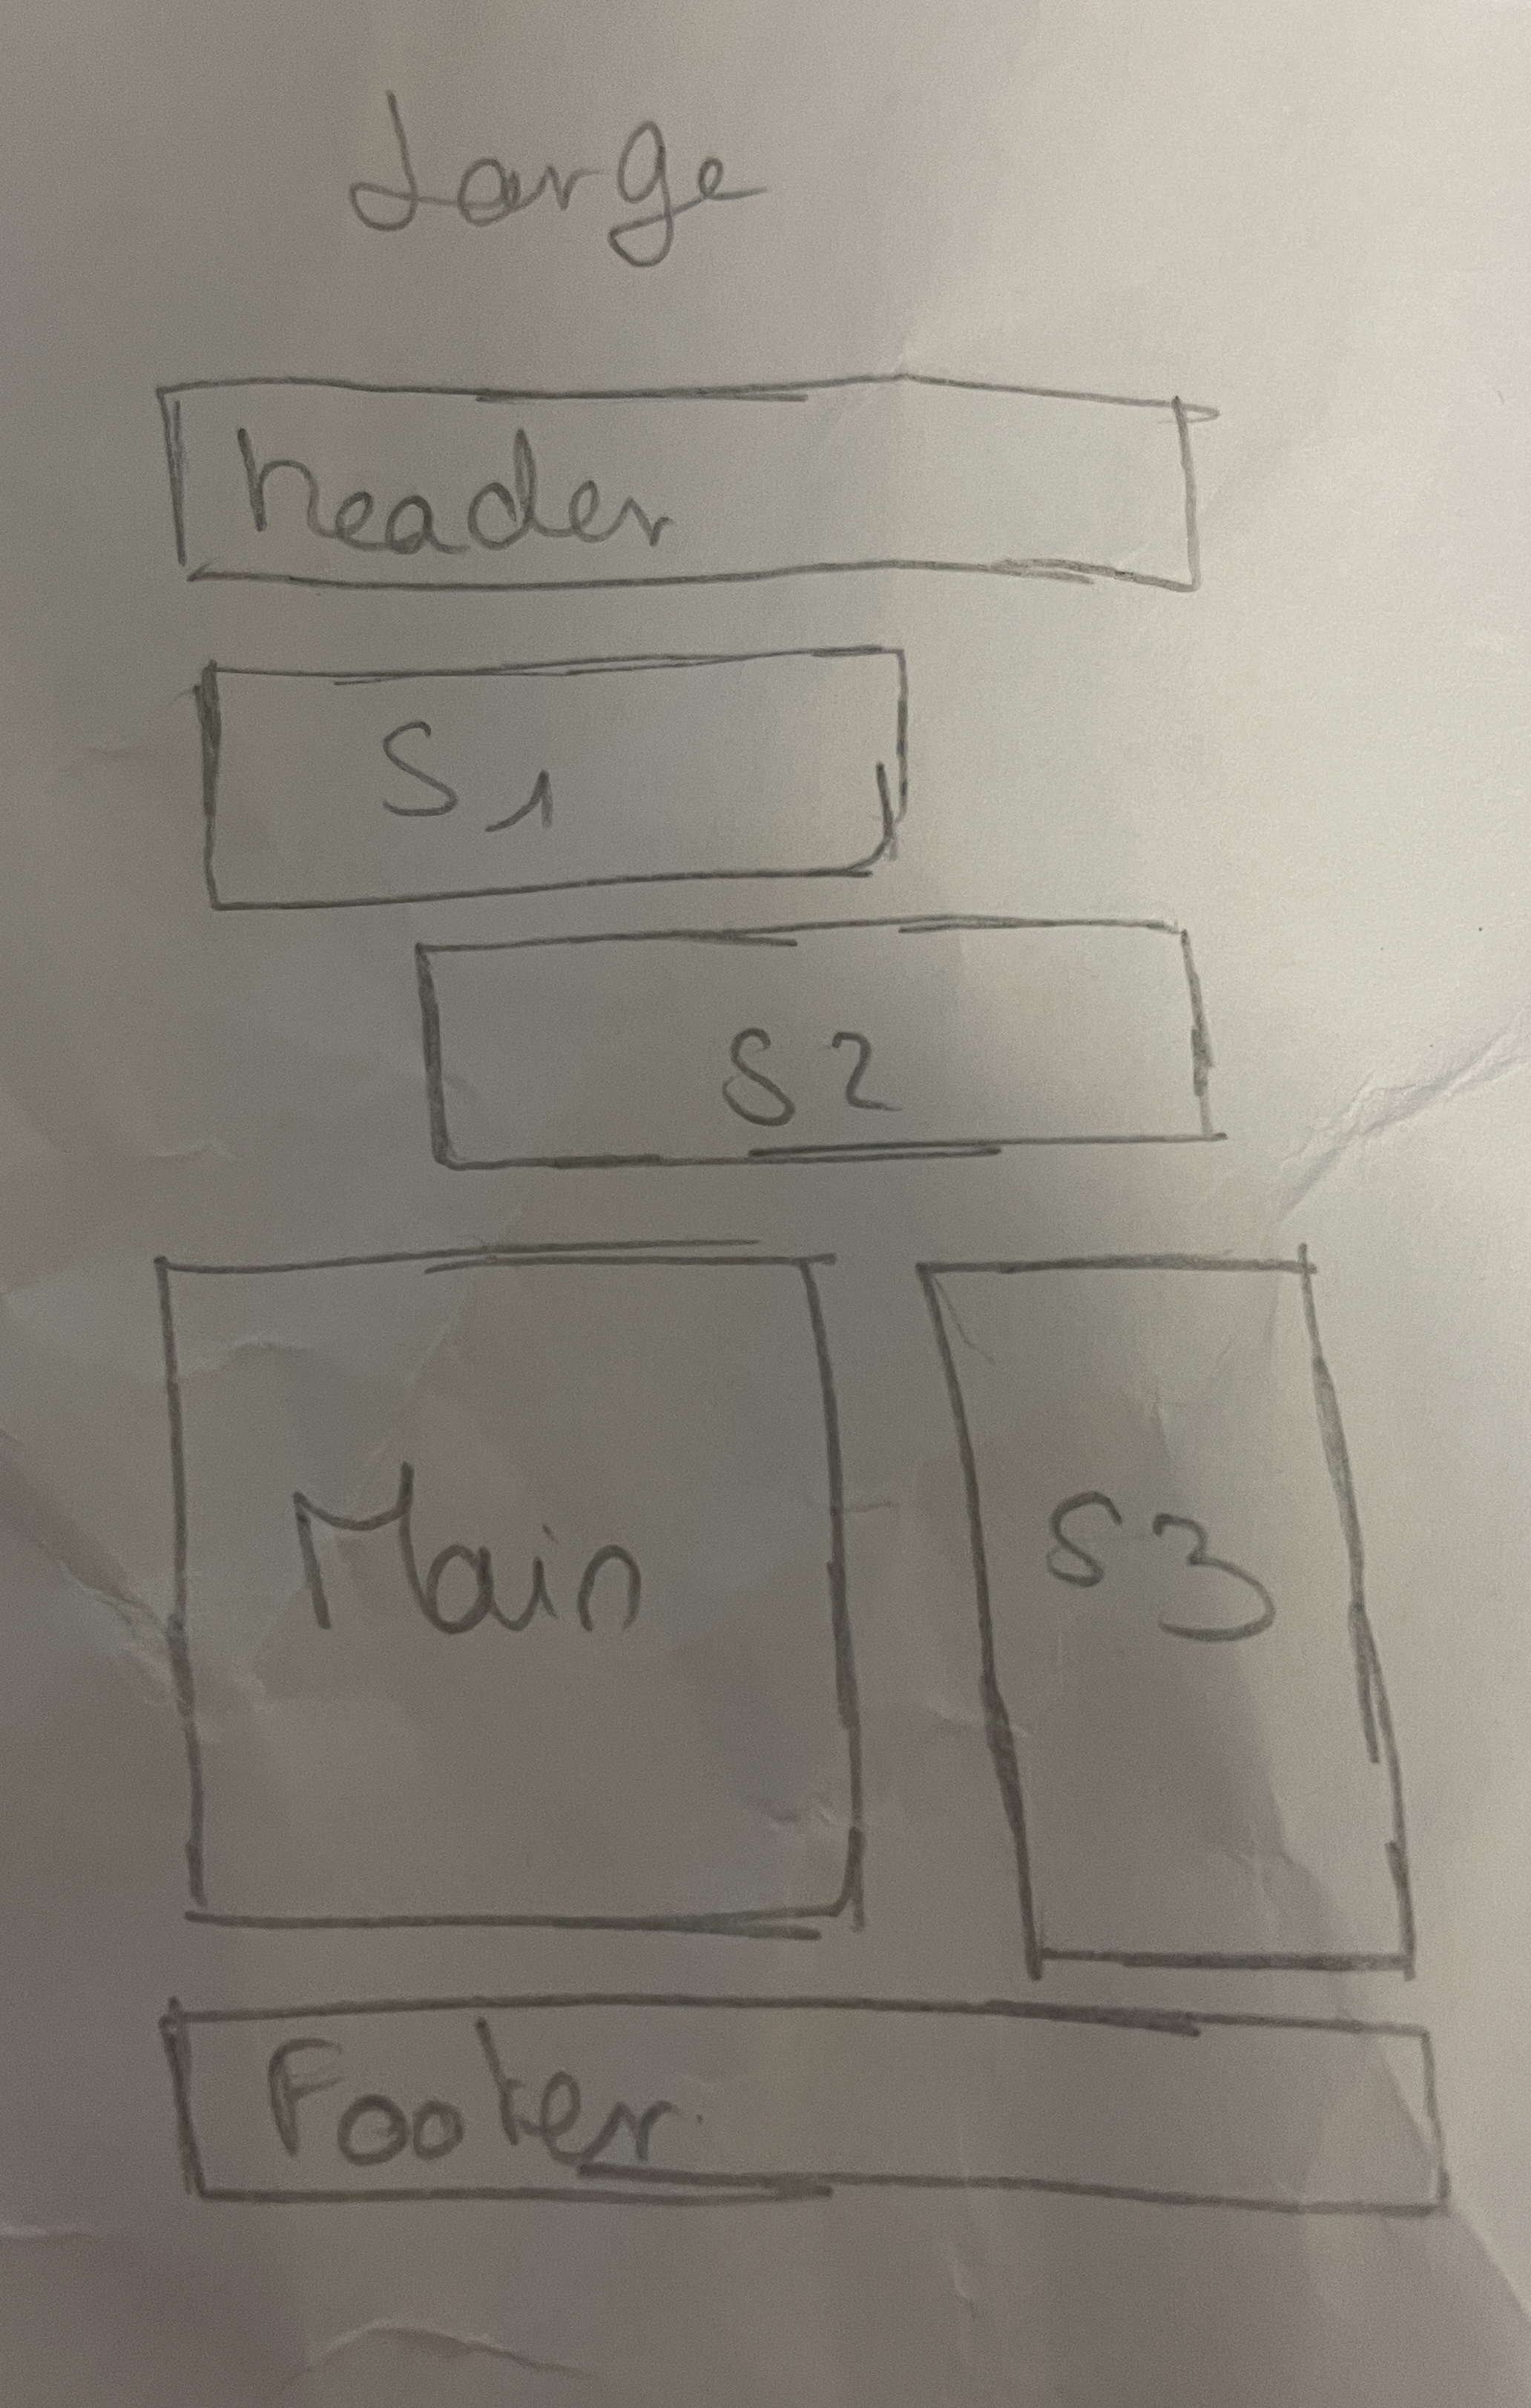 Large
header
S1
S2
Main
S3
Footer